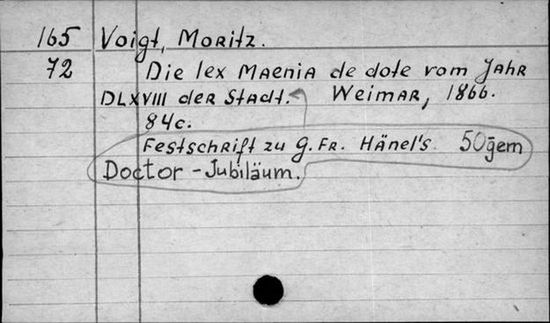 165 Voigt, Moritz.
72 Die lex Maenia de dote vom Jahr
DLXVIII der Stadt. Weimar, 1866.
84c.
Festschrift zu G. Fr. Hänel's 50gem
Doctor-Jubiläum.